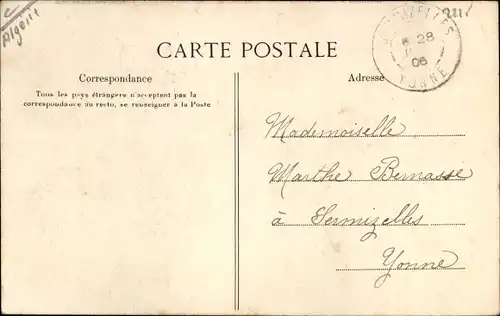 Algérie
CARTE POSTALE
Correspondance
Tous les pays étrangers n'acceptent pas la
correspondance au recto, se renseigner à la Poste
Adresse
28
06
YONNE
Mademoiselle
Marthe Bernasse
à Sermizelles
Yonne